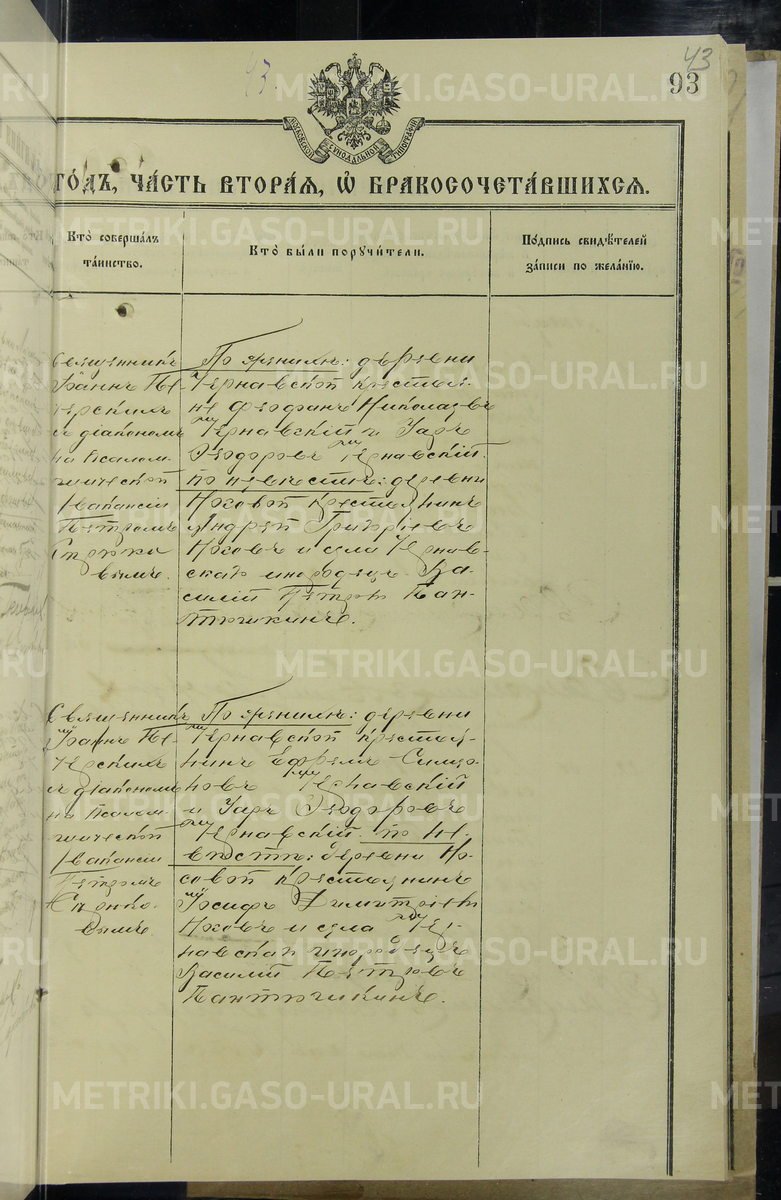 43
93
43.
МОСКОВСКОЙ СѴНОДАЛЬНОЙ ТИПОГРАФІИ
ГО́ДЪ, ЧА́СТЬ ВТОРА́Я, Ѡ БРАКОСОЧЕТА́ВШИХСЯ.
Кто̀ соверша́лъ
та́инство.
Кто̀ бы́ли поручи́тели.
По́дпись свидѣ́телей
за́писи по жела́нїю.
Священникъ
Іоаннъ Пе-
терскимъ
и діакономъ
на псалом-
щической
вакансіи
Петромъ
вымъ.
По женихѣ: деревни
Чернавской крестья-
не Феофанъ Николаевъ
Чернавскій и Уаръ
Ѳеодоровъ Чернавскій.
по невѣстѣ: деревни
Носовой крестьянинъ
Андрей Григорьевъ
Носовъ и села Чернав-
скаго инородецъ Ва-
силій Петровъ Пан-
тюшкинъ.
Священникъ
Іоаннъ Пе-
терскимъ
и діакономъ
на псалом-
щической
вакансіи
Петромъ
вымъ
По женихѣ: деревни
Чернавской крестья-
нинъ Ефремъ Симео-
новъ Чернавскій
и Уаръ Ѳеодоровъ
Чернавскій. по не-
вѣстѣ: деревни Но-
совой крестьянинъ
Іосифъ Димитріевъ
Носовъ и села Чер-
навскаго инородецъ
Василій Петровъ
Пантюшкинъ.
METRIKI.GASO-URAL.RU